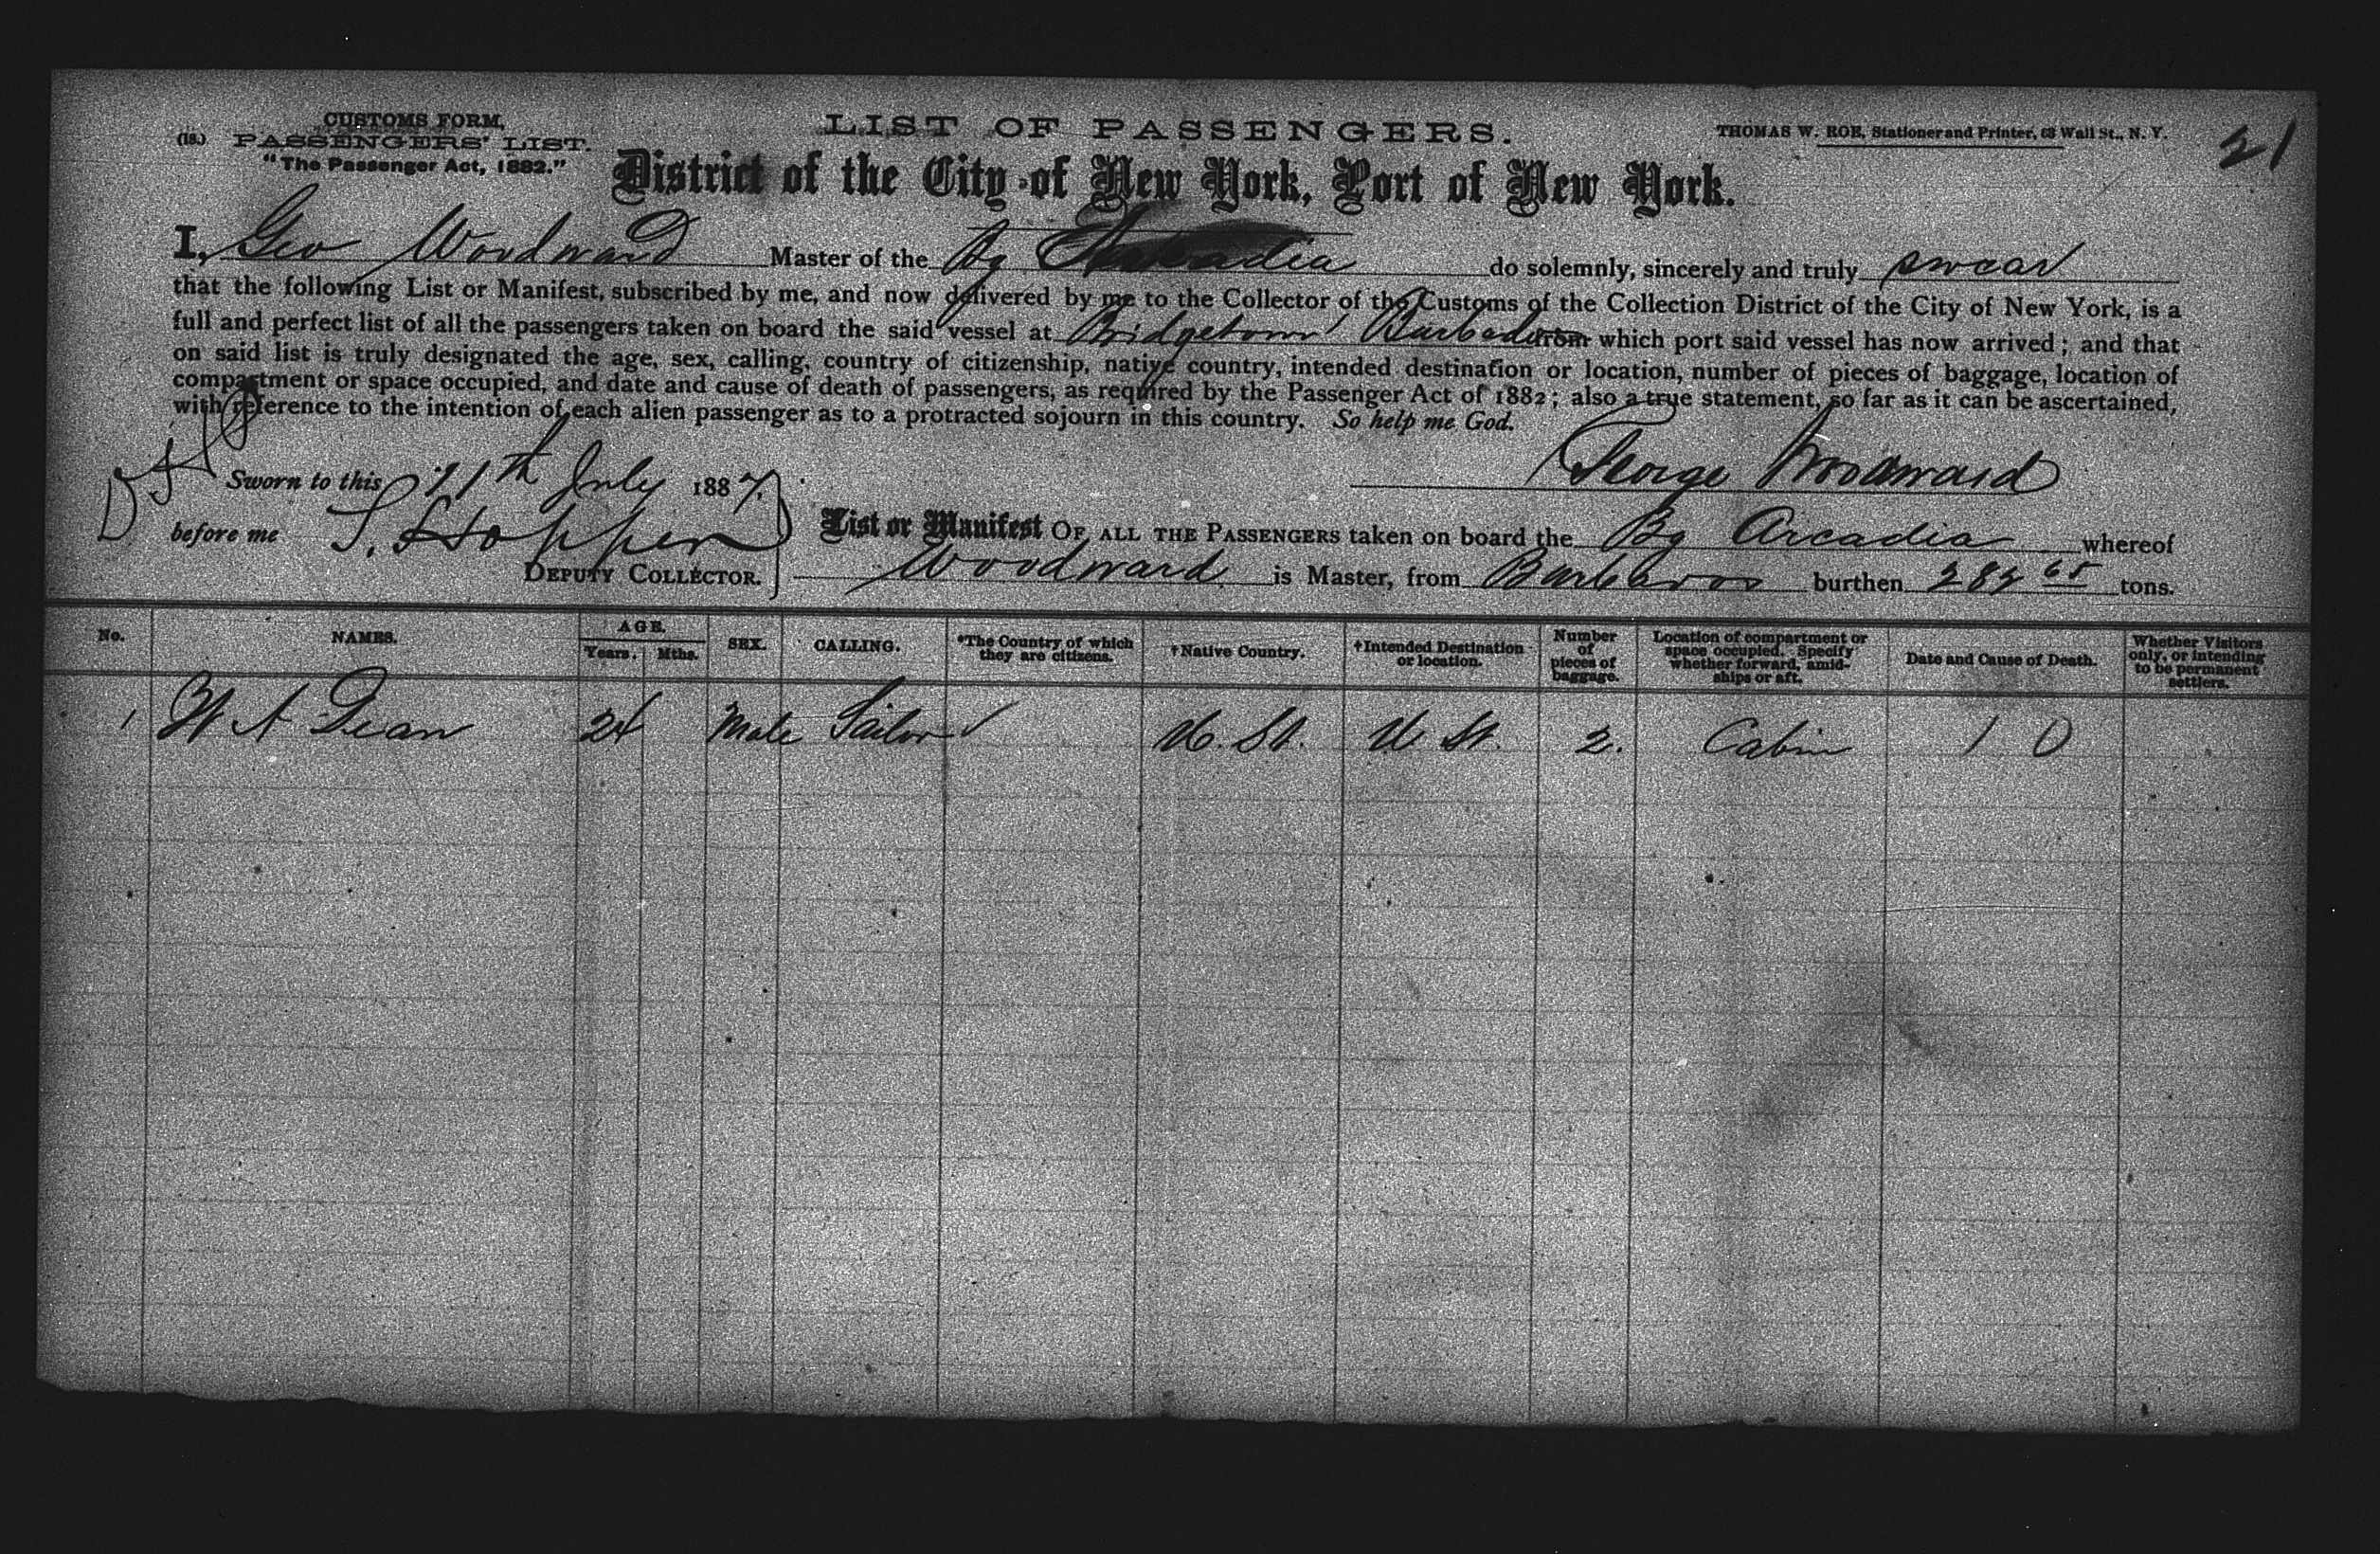 CUSTOMS FORM,
(18.) PASSENGERS' LIST.
"The Passenger Act, 1882."
LIST OF PASSENGERS.
THOMAS W. ROE, Stationer and Printer, 63 Wall St., N. Y.
21
District of the City of New York, Port of New York.
I, Geo Woodward Master of the Bg Arcadia do solemnly, sincerely and truly swear
that the following List or Manifest, subscribed by me, and now delivered by me to the Collector of the Customs of the Collection District of the City of New York, is a
full and perfect list of all the passengers taken on board the said vessel at Bridgetown Barbados from which port said vessel has now arrived; and that
on said list is truly designated the age, sex, calling, country of citizenship, native country, intended destination or location, number of pieces of baggage, location of
compartment or space occupied, and date and cause of death of passengers, as required by the Passenger Act of 1882; also a true statement, so far as it can be ascertained,
with reference to the intention of each alien passenger as to a protracted sojourn in this country. So help me God.
Sworn to this 11th July 1887.
George Woodward
before me S. Hopper
DEPUTY COLLECTOR.
List or Manifest OF ALL THE PASSENGERS taken on board the Bg Arcadia whereof
Woodward is Master, from Barbados burthen 282 65 tons.
No. NAMES. AGE. Years. Mths. SEX. CALLING. *The Country of which they are citizens. †Native Country. †Intended Destination or location. Number of pieces of baggage. Location of compartment or space occupied. Specify whether forward, amidships or aft. Date and Cause of Death. Whether Visitors only, or intending to be permanent settlers.
1 W A Dean 24 Male Sailor U. St. U. St. 2. Cabin 1 0